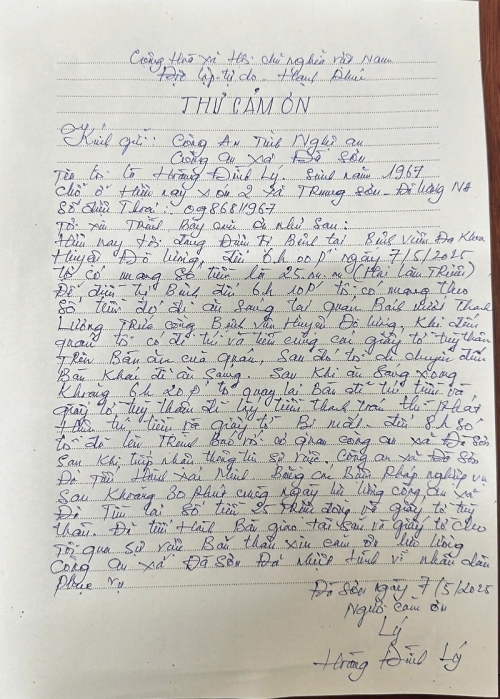 Cộng Hoà xã Hội chủ nghĩa việt Nam
Độc lập - tự do - Hạnh Phúc
THƯ CẢM ƠN
Kính gửi: Công An Tỉnh Nghệ an
Công an xã Đà Sơn
Tên tôi là Hoàng Đình Lý. Sinh năm 1967
Chỗ ở Hiện nay xóm 2 xã Trung sơn - Đô lương NA
Số điện Thoại: 098681967
Tôi xin Trình Bày sự như sau:
Hiện nay tôi đang Điều trị Bệnh tại Bệnh viện Đa Khoa
Huyện Đô lương, đến 6h 00P ngày 7/5/2025
tôi có mang số tiền là 25.000.000 (Hai lăm Triệu)
Để điều trị Bệnh đến 6h 10P tôi có mang theo
số tiền đó đi ăn sáng tại quán Bánh mướt Thanh
Lương Trước cổng Bệnh viện Huyện Đô lương, Khi đến
quán tôi có để ví và tiền cùng các giấy tờ tuỳ thân
Trên Bàn ăn của quán. Sau đó tôi di chuyển đến
Bàn Khác để ăn sáng. Sau Khi ăn sáng xong
Khoảng 6h 20P tôi quay lại Bàn để ví tiền và
giấy tờ tuỳ thân để lấy tiền thanh toán thì Phát
Hiện ví tiền và giấy tờ Bị mất. đến 8h 50
tôi đã lên Trình báo với cơ quan công an xã Đà Sơn
Sau Khi tiếp nhận thông tin sự việc, Công an xã Đà Sơn
Đã Tiến Hành xác Minh Bằng các Biện Pháp nghiệp vụ
Sau Khoảng 30 phút cùng ngày lực lượng công an xã
Đã Tìm lại số tiền 25 Triệu đồng và giấy tờ tuỳ
thân. Đã tiến Hành Bàn giao tài sản và giấy tờ cho
tôi qua sự việc Bản thân xin cảm ơn lực lượng
Công an xã Đà Sơn Đã nhiệt tình vì nhân dân
Phục vụ
Đà Sơn ngày 7/5/2025
Người cảm ơn
Lý
Hoàng Đình Lý